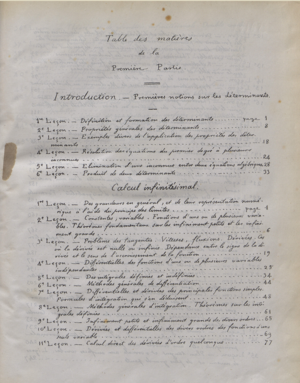 Table des matières
de la
Première Partie
Introduction. — Premières notions sur les déterminants
1re Leçon. — Définition et formation des déterminants page 1
2e Leçon. — Propriétés générales des déterminants 8
3e Leçon. — Exemples divers de l'application des propriétés des déterminants
4e Leçon. — Résolution des équations du premier degré à plusieurs
5e Leçon. — Élimination d'une inconnue entre deux équations algébriques
6e Leçon. — Produit de deux déterminants
Calcul infinitésimal.
1re Leçon. — Des grandeurs en général, et de leur représentation numérique
à l'aide du principe des limites. — page
2e Leçon. — Constantes, variables. Fonctions d'une ou de plusieurs variables.
Théorèmes fondamentaux sur les infiniment petits et les infiniment
grands
3e Leçon. — Problème des tangentes. Vitesses, fluxions. Dérivées.
ou la dérivée est nulle ou infinie. Dépendance entre le signe de la dérivée
et le sens de l'accroissement de la fonction
4e Leçon. — Différentielles des fonctions d'une ou de plusieurs variables
indépendantes
5e Leçon. — Des intégrales définies et indéfinies
6e Leçon. — Méthodes générales de différentiation 44
7e Leçon. — Différentielles et dérivées des principales fonctions simples.
Formules d'intégration qui s'en déduisent
8e Leçon. — Méthodes générales d'intégration. Théorèmes sur les intégrales
définies
9e Leçon. — Infiniment petits et infiniment grands de divers ordres
10e Leçon. — Dérivées et différentielles des divers ordres des fonctions d'une
seule variable
11e Leçon. — Calcul direct des dérivées d'ordre quelconque 77